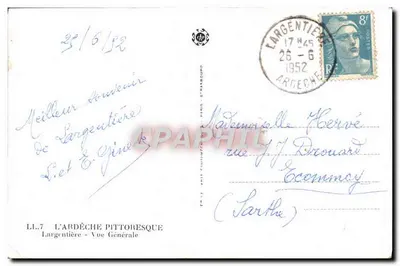 25/6/52
Meilleur souvenir
de Largentière
L. et E.
LL..7 L'ARDÈCHE PITTORESQUE
Largentière - Vue Générale
LARGENTIERE
17 H 45
26 - 6
1952
ARDECHE
8F
Mademoiselle Hervé
rue J.J. Drouard
Ecommoy
(Sarthe)
CARTE-POSTALE